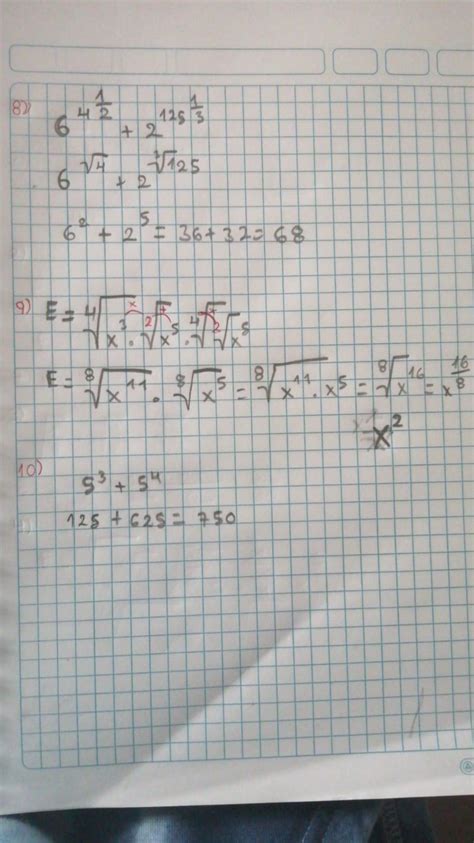 8) 6^4^(1/2) + 2^125^(1/3)
6^√4 + 2^∛125
6² + 2⁵ = 36 + 32 = 68
9) E = ⁴√(x³ · ²√x⁵) · ⁴√(²√x⁵)
E = ⁸√x¹¹ · ⁸√x⁵ = ⁸√(x¹¹ · x⁵) = ⁸√x¹⁶ = x^(16/8)
= x²
10) 5³ + 5⁴
125 + 625 = 750